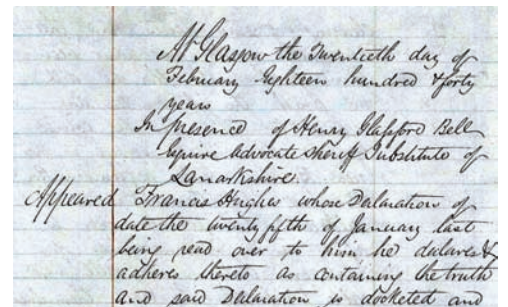 At Glasgow the Twentieth day of
February Eighteen hundred & forty
years
In presence of Henry Glassford Bell
Esquire Advocate Sheriff Substitute of
Lanarkshire
Appeared Francis Hughes whose Declaration of
date the twenty fifth of January last
being read over to him he declares &
adheres thereto as containing the truth
and said Declaration is docketed and